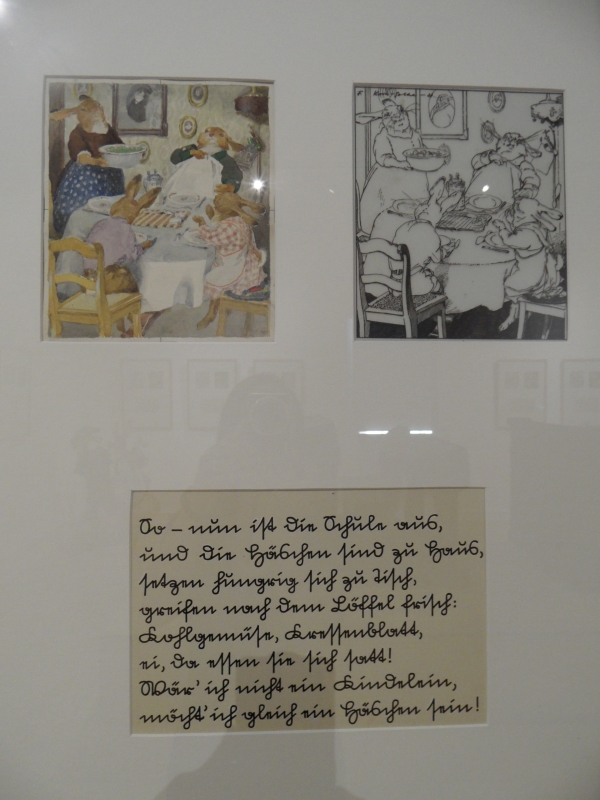 So – nun ist die Schule aus,
und die Häschen sind zu Haus,
setzen hungrig sich zu Tisch,
greifen nach dem Löffel frisch:
Kohlgemüse, Kressenblatt,
ei, da essen sie sich satt!
Wär' ich nicht ein Kindelein,
möcht' ich gleich ein Häschen sein!